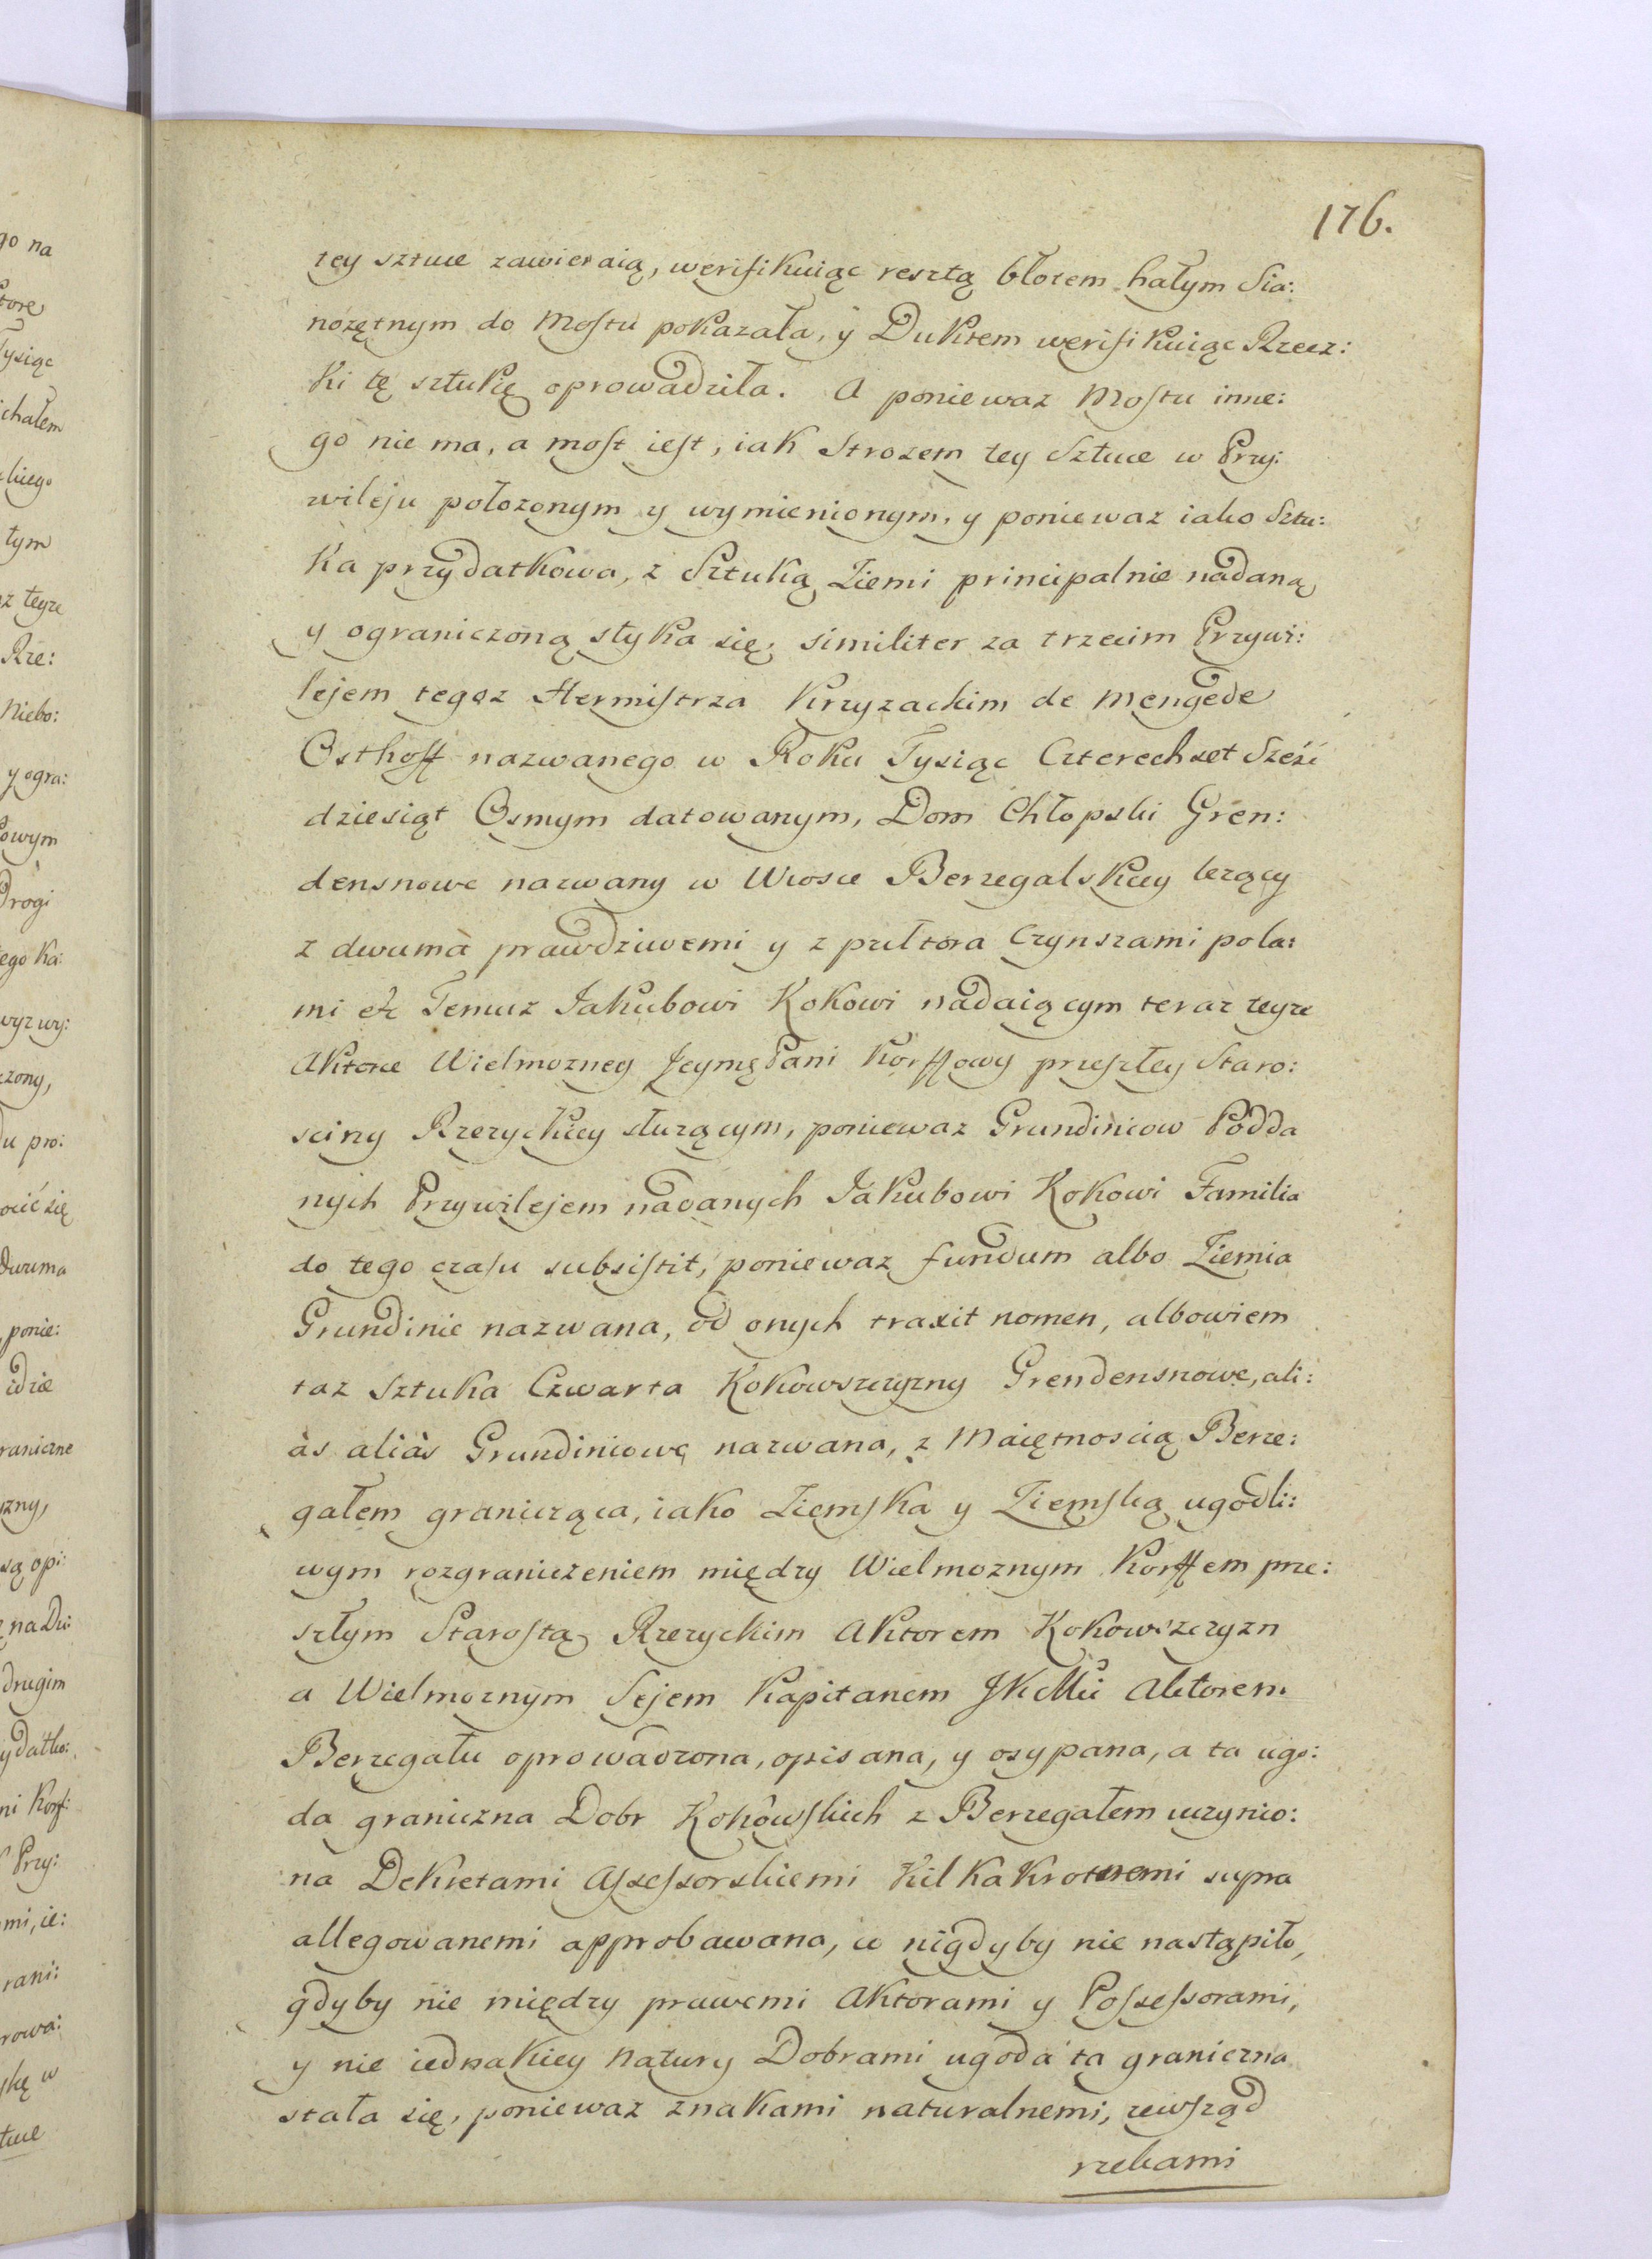 176.
tey sztuce zawieraią, weryfikuiąc resztą błotem hałym Sia:
nożętnym do Mostu pokazała, y Duktem weryfikuiąc Rzecz:
ki tę sztukę oprowadziła. A poniewaz Mostu inne:
go nie ma, a most iest, iak Strozem tey Sztuce w Przy:
wileju położonym y wymienionym, y poniewaz iako Sztu:
ka przydatkowa, z Sztuką Ziemi principalnie nadaną
y ograniczoną styka się, similiter za trzecim Przywi:
lejem tegoz Hermistrza Krzyzackim de Mengede
Osthoff nazwanego w Roku Tysiąc Czterechset Sześć
dziesiąt Osmym datowanym, Dom Chłopski Gren:
densnowe nazwany w Wiosce Berzegalskiey leżący
z dwuma prawdziwemi y z pułtora Czynszami pola:
mi etc Temuz Jakubowi Kokowi nadaiącym teraz teyze
Aktorce Wielmozney Jeymę Pani Korffowy przeszłey Staro:
sciny Rzezyckiey służącym, poniewaz Grundiniow Podda
nych Przywilejem nadanych Jakubowi Kokowi Familia
do tego czasu subsistit, poniewaz fundum albo Ziemia
Grundinie nazwana, od onych traxit nomen, albowiem
taz Sztuka Czwarta Kokowszczyzny Grendensnowe, ali:
às aliàs Grundiniowe nazwana, z Maiętnoscią Berze:
gałem granicząca, iako Ziemska y Ziemską ugodli:
wym rozgraniczeniem między Wielmoznym Korffem prze:
szłym Starostą Rzezyckim Aktorem Kokowszczyzn
a Wielmoznym Sejem Kapitanem JKMci Aktorem
Berzegału oprowadzona, opisana, y osypana, a ta ugo:
da graniczna Dobr Kokowskich z Berzegałem uczynio:
na Dekretami Assessorskiemi Kilkakrotnemi supra
allegowanemi approbawana, co nigdyby nie nastąpiło,
gdyby nie między prawemi Aktorami y Possessorami,
y nie iednakiey Natury Dobrami ugoda ta graniczna
stała się, poniewaz znakami naturalnemi, zewsząd
rzekami